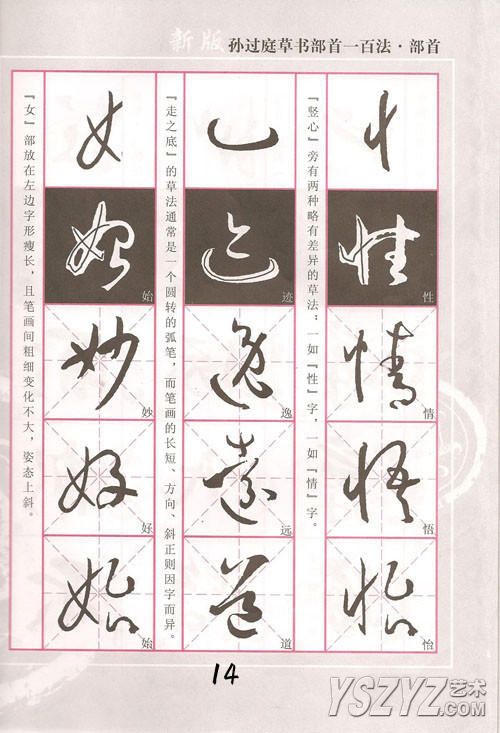 新版 孙过庭草书部首一百法·部首
『竖心』旁有两种略有差异的草法：一如『性』字，一如『情』字。
性
情
悟
怡
『走之底』的草法通常是一个圆转的弧笔，而笔画的长短、方向、斜正则因字而异。
迹
逸
远
道
『女』部放在左边字形瘦长，且笔画间粗细变化不大，姿态上斜。
始
妙
好
始
14
YSZYZ艺术
.COM